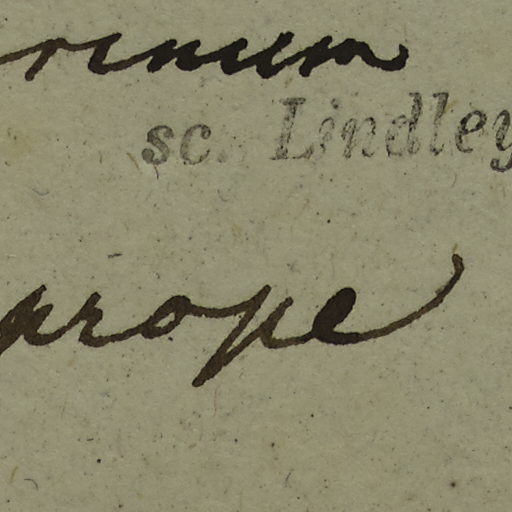 rinum
sc. Lindley
prope